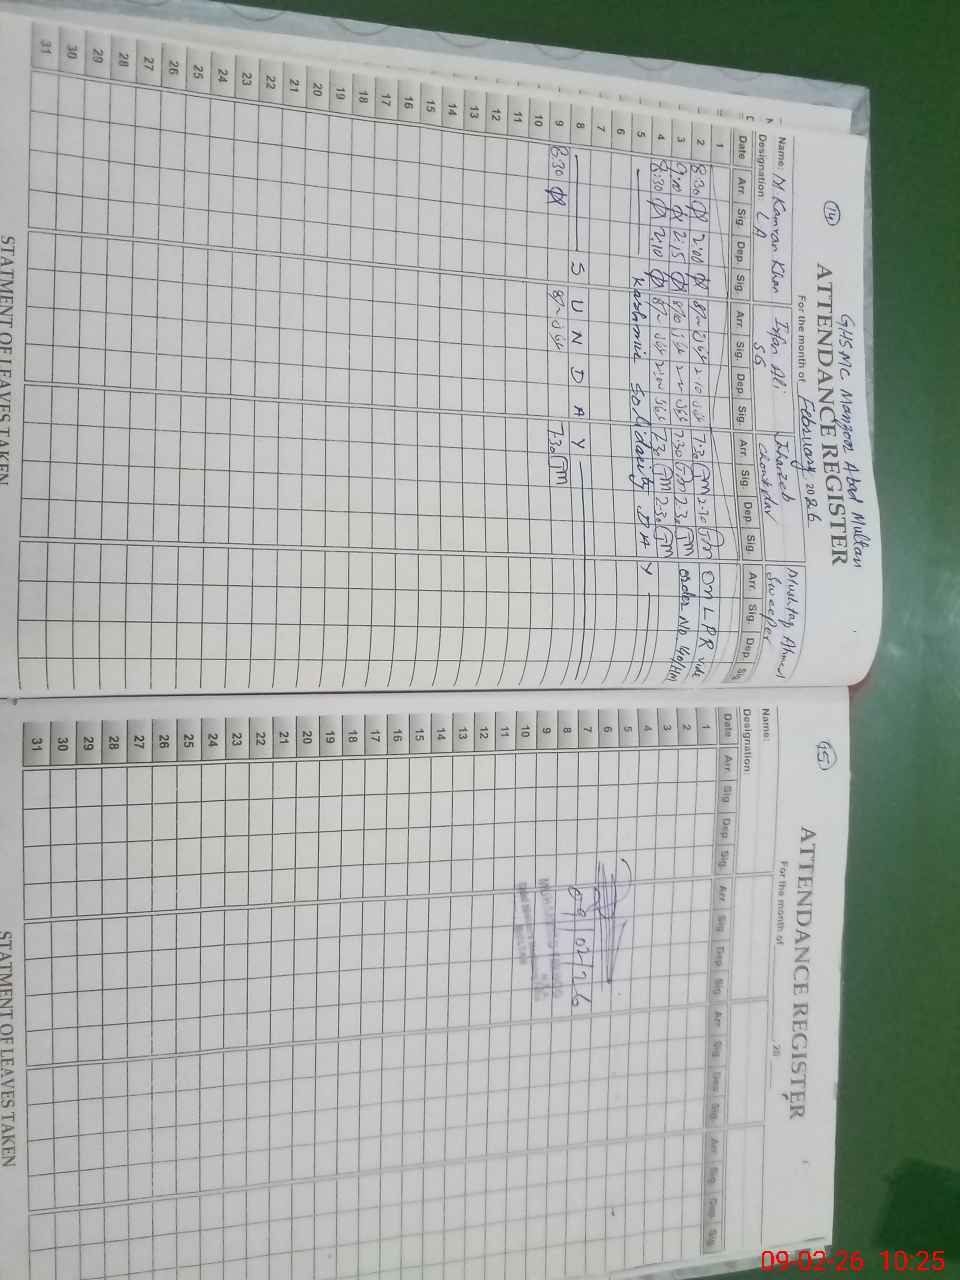 (14)
GHSMC. Manzoor Abad Multan
ATTENDANCE REGISTER
For the month of February 2026
Name: M. Kamran Khan Irfan Ali Jahanzeb Mushtaq Ahmad
Designation: LA SG Chowkidar Sweeper
Date Arr. Sig. Dep. Sig. Arr. Sig. Dep. Sig. Arr. Sig. Dep. Sig. Arr. Sig. Dep. Sig.
1
2 8:30 2:00 2:10 7:30 2:30 ON LPR vide
3 9:00 2:15 7:30 2:30 order No
4 8:30 2:10 2:00 7:30 2:30
5 Kashmir Solidarity DAY
6
7
8 SUNDAY
9 8:30 7:30
10
11
12
13
14
15
16
17
18
19
20
21
22
23
24
25
26
27
28
29
30
31
STATMENT OF LEAVES TAKEN
(15)
ATTENDANCE REGISTER
For the month of 20
Name:
Designation:
Date Arr. Sig. Dep. Sig. Arr. Sig. Dep. Sig. Arr. Sig. Dep. Sig. Arr. Sig. Dep. Sig.
1
2
3
4
5
6
7 09/02/26
8
9
10
11
12
13
14
15
16
17
18
19
20
21
22
23
24
25
26
27
28
29
30
31
STATMENT OF LEAVES TAKEN
09-02-26 10:25